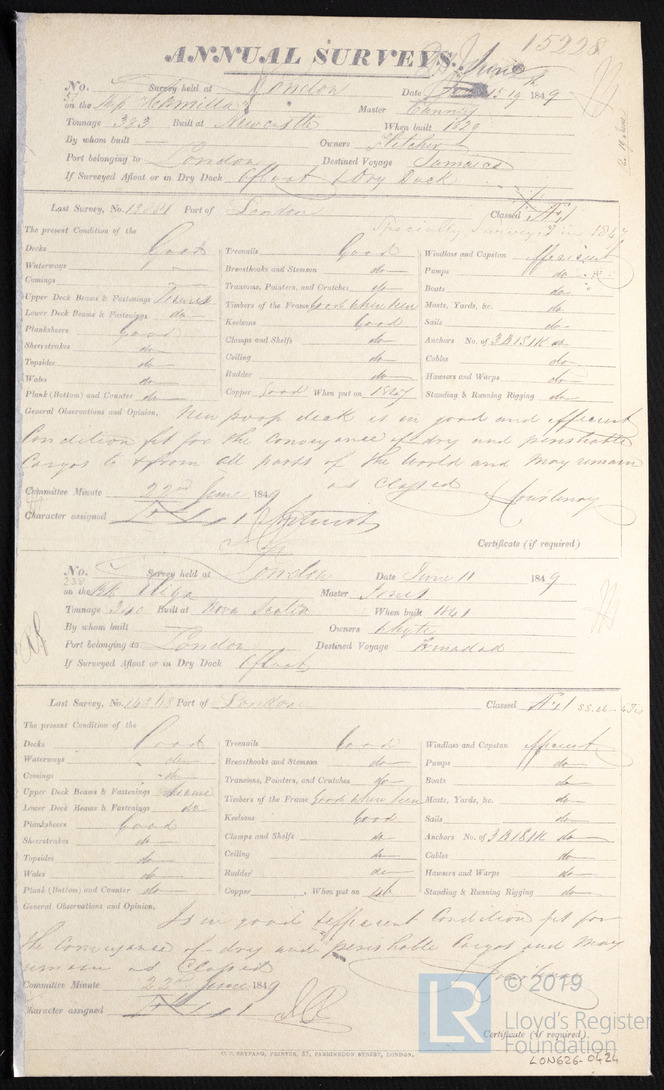 15228
ANNUAL SURVEYS.
No. Survey held at London Date June 15 19 1849
on the Ship Master
Tonnage 323 Built at Newcastle When built 1829
By whom built Owners Fletcher
Port belonging to London Destined Voyage Jamaica
If Surveyed Afloat or in Dry Dock Afloat & Dry Dock
Last Survey, No. Port of London Classed Æ 1
Specially Surveyed in 1847
The present Condition of the
Decks Good Treenails Good Windlass and Capstan efficient
Waterways Breasthooks and Stemson do Pumps do
Comings Transoms, Pointers, and Crutches do Boats do
Upper Deck Beams & Fastenings Timbers of the Frame Good where seen Masts, Yards, &c. do
Lower Deck Beams & Fastenings do Keelsons Good Sails do
Planksheers Good Clamps and Shelfs do Anchors No. of 3 B 1 S 1 K do
Sheerstrakes do Ceiling do Cables do
Topsides do Rudder do Hawsers and Warps do
Wales do Copper Good When put on 1847 Standing & Running Rigging do
Plank (Bottom) and Counter do
General Observations and Opinion, New poop deck is in good and efficient
Condition fit for the conveyance of dry and perishable
Cargos to & from all parts of the World and may remain
as Classed Courtenay
Committee Minute 22nd June 1849
Character assigned Æ 1
Certificate (if required)
No. Survey held at London Date June 11 1849
238
on the Bk Eliza Master Jones
Tonnage 340 Built at Nova Scotia When built 1841
By whom built Owners Whyte
Port belonging to London Destined Voyage Trinidad
If Surveyed Afloat or in Dry Dock Afloat
Last Survey, No. Port of London Classed Æ 1
The present Condition of the
Decks Good Treenails Good Windlass and Capstan efficient
Waterways do Breasthooks and Stemson do Pumps do
Comings do Transoms, Pointers, and Crutches do Boats do
Upper Deck Beams & Fastenings Timbers of the Frame Good where seen Masts, Yards, &c. do
Lower Deck Beams & Fastenings do Keelsons Good Sails do
Planksheers Good Clamps and Shelfs do Anchors No. of 3 B 1 S 1 K do
Sheerstrakes do Ceiling do Cables do
Topsides do Rudder do Hawsers and Warps do
Wales do Copper When put on Standing & Running Rigging do
Plank (Bottom) and Counter do
General Observations and Opinion,
Is in good & efficient Condition fit for
the conveyance of dry and perishable Cargos and may
remain as Classed Courtenay
Committee Minute 22nd June 1849
Character assigned Æ 1
Certificate (if required).
C. F. SEYFANG, PRINTER, 57, FARRINGDON STREET, LONDON.
LR © 2019
Lloyd's Register
Foundation
LON626-0424